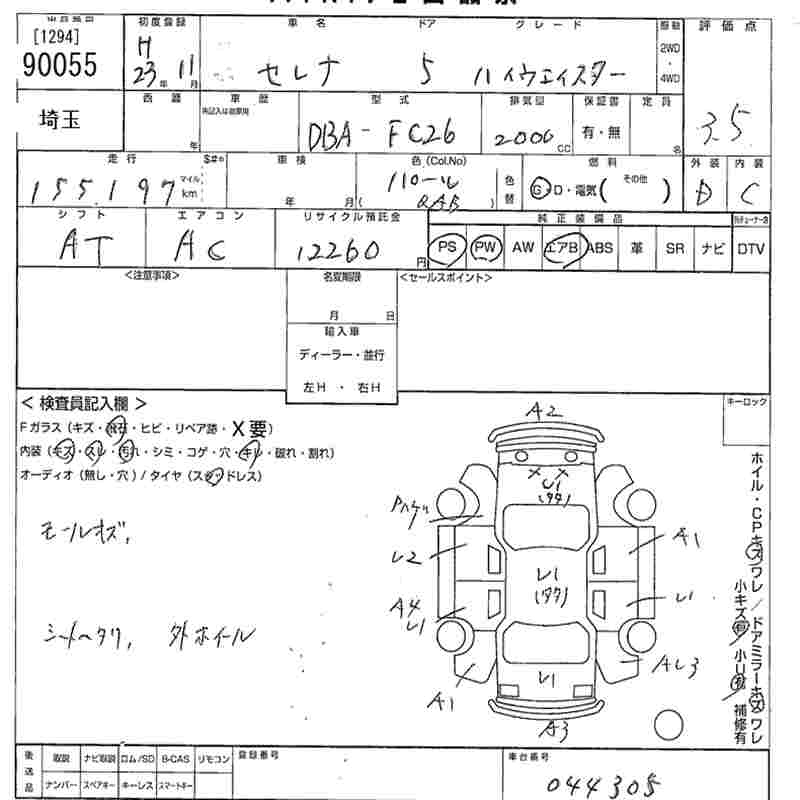 [1294]
90055
初度登録
H 23年 11月
車名 ドア グレード
セレナ 5 ハイウェイスター
駆動
2WD
・
4WD
評価点
3.5
埼玉
西暦 年
車歴
型式
DBA-FC26
排気量
2000 cc
保証書
有・無
定員
名
走行
155,197 マイル km
S#
車検
年 月
色(Col.No)
色替
燃料
G・D・電気( その他 )
外装
D
内装
C
シフト
AT
エアコン
AC
リサイクル預託金
12260 円
純正装備品
PS PW AW エアB ABS 革 SR ナビ DTV
<注意事項>
名変期限
月 日
<セールスポイント>
輸入車
ディーラー・並行
左H ・ 右H
<検査員記入欄>
Fガラス(キズ・飛石・ヒビ・リペア跡・X要)
内装(キズ・スレ・汚れ・シミ・コゲ・穴・キレ・破れ・割れ)
オーディオ(無し・穴)/タイヤ(スタッドレス)
モールキズ,
シートヘタリ, 外ホイール
キーロック
ホイル・CPキズワレ/ドアミラーキズワレ
小キズ有 小U有 補修有
A2
U1
L2
A1
A4
U1
A1
A3
後送品
取説 ナビ取説 ロム/SD B-CAS リモコン
ナンバー スペアキー キーレス スマートキー
登録番号
車台番号
044305